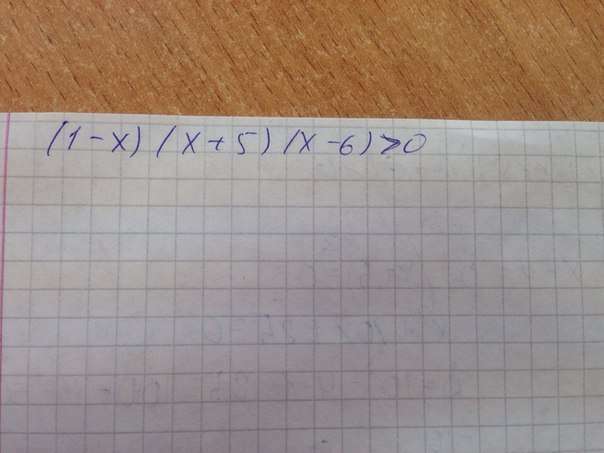 (1-x) (x+5) (x-6)≥0